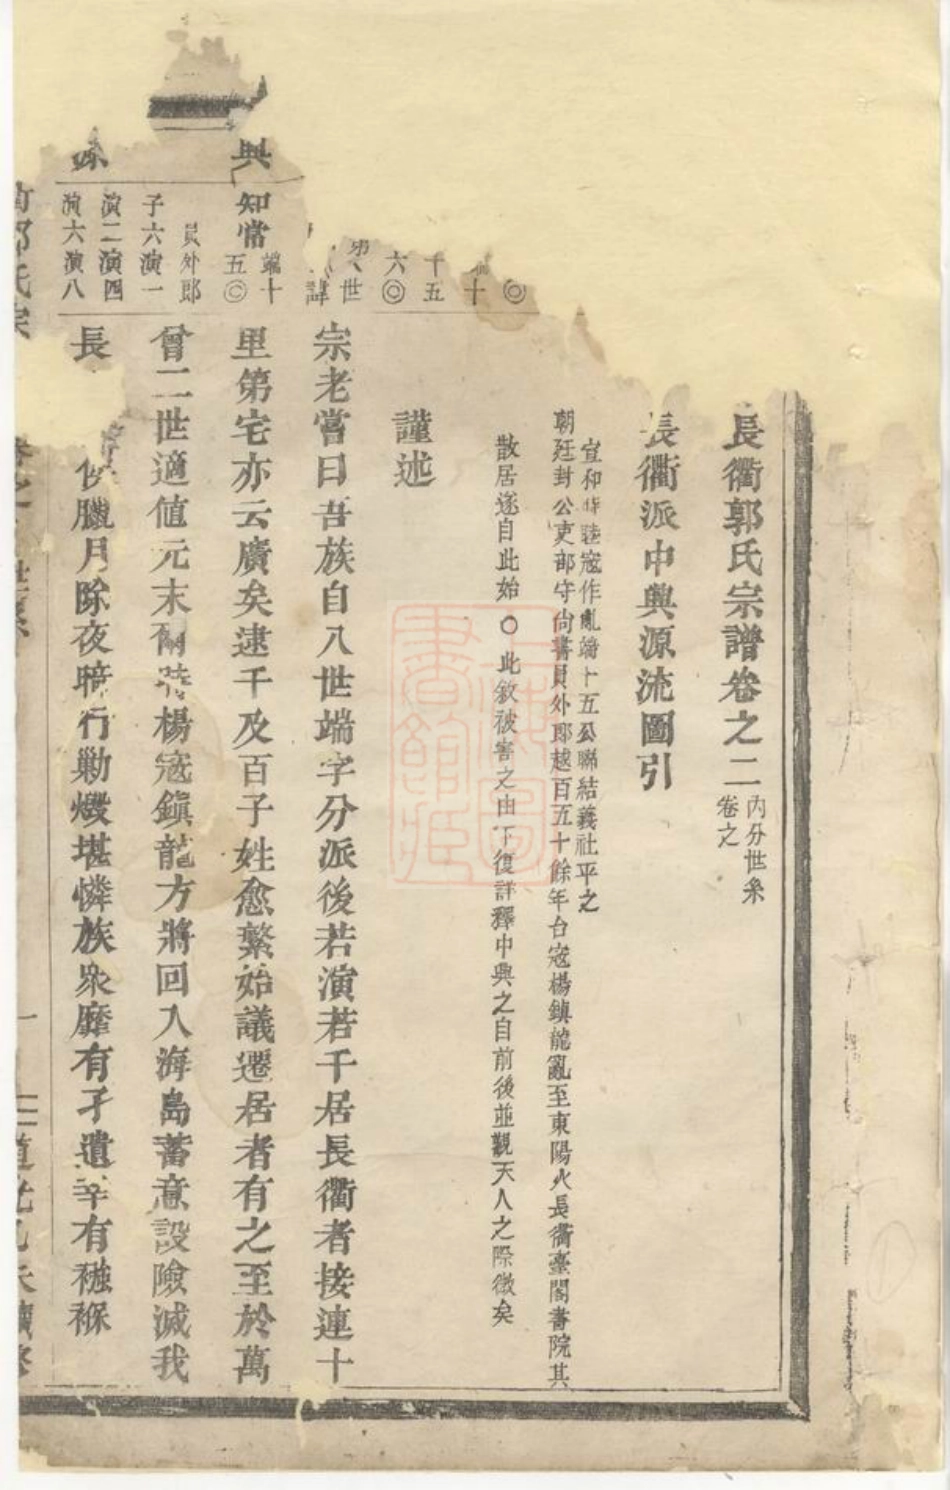 長衢郭氏宗譜卷之二
內分世系
卷之
長衢派中興源流圖引
宣和時睦寇作亂端十五公聯結義社平之
朝廷封公吏部守尚書員外郎越百五十餘年台寇楊鎮龍亂至東陽火長衢臺閣書院其
散居遂自此始○此敘被害之由下復詳釋中興之自前後並觀天人之際微矣
謹述
宗老嘗曰吾族自八世端字分派後若演若千居長衢者接連十
里第宅亦云廣矣逮千及百子姓愈繁始議遷居者有之至於萬
曾二世適值元末 楊寇鎮龍方將回入海島蓄意設險滅我
長
臘月除夜暗行勦燬堪憐族眾靡有孑遺幸有襁褓
十五
六◎
世
端十
五◎
知常
員外郎
子六演一
演二演四
演六演八
興